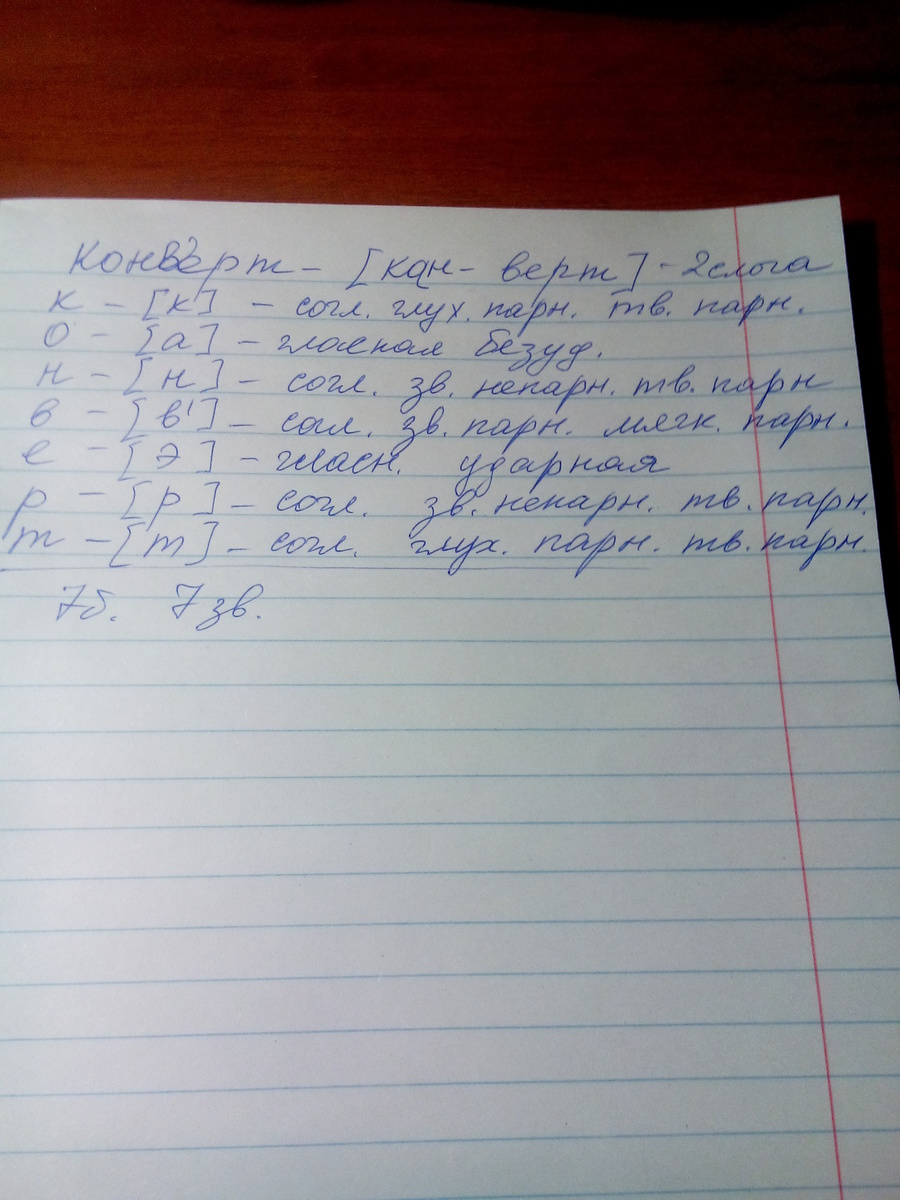 Конве́рт - [кан - верт] - 2слога
к - [к] - согл. глух. парн. тв. парн.
о - [а] - гласная безуд.
н - [н] - согл. зв. непарн. тв. парн
в - [в'] - согл. зв. парн. мягк. парн.
е - [э] - гласн. ударная
р - [р] - согл. зв. непарн. тв. парн.
т - [т] - согл. глух. парн. тв. парн.
7б. 7зв.